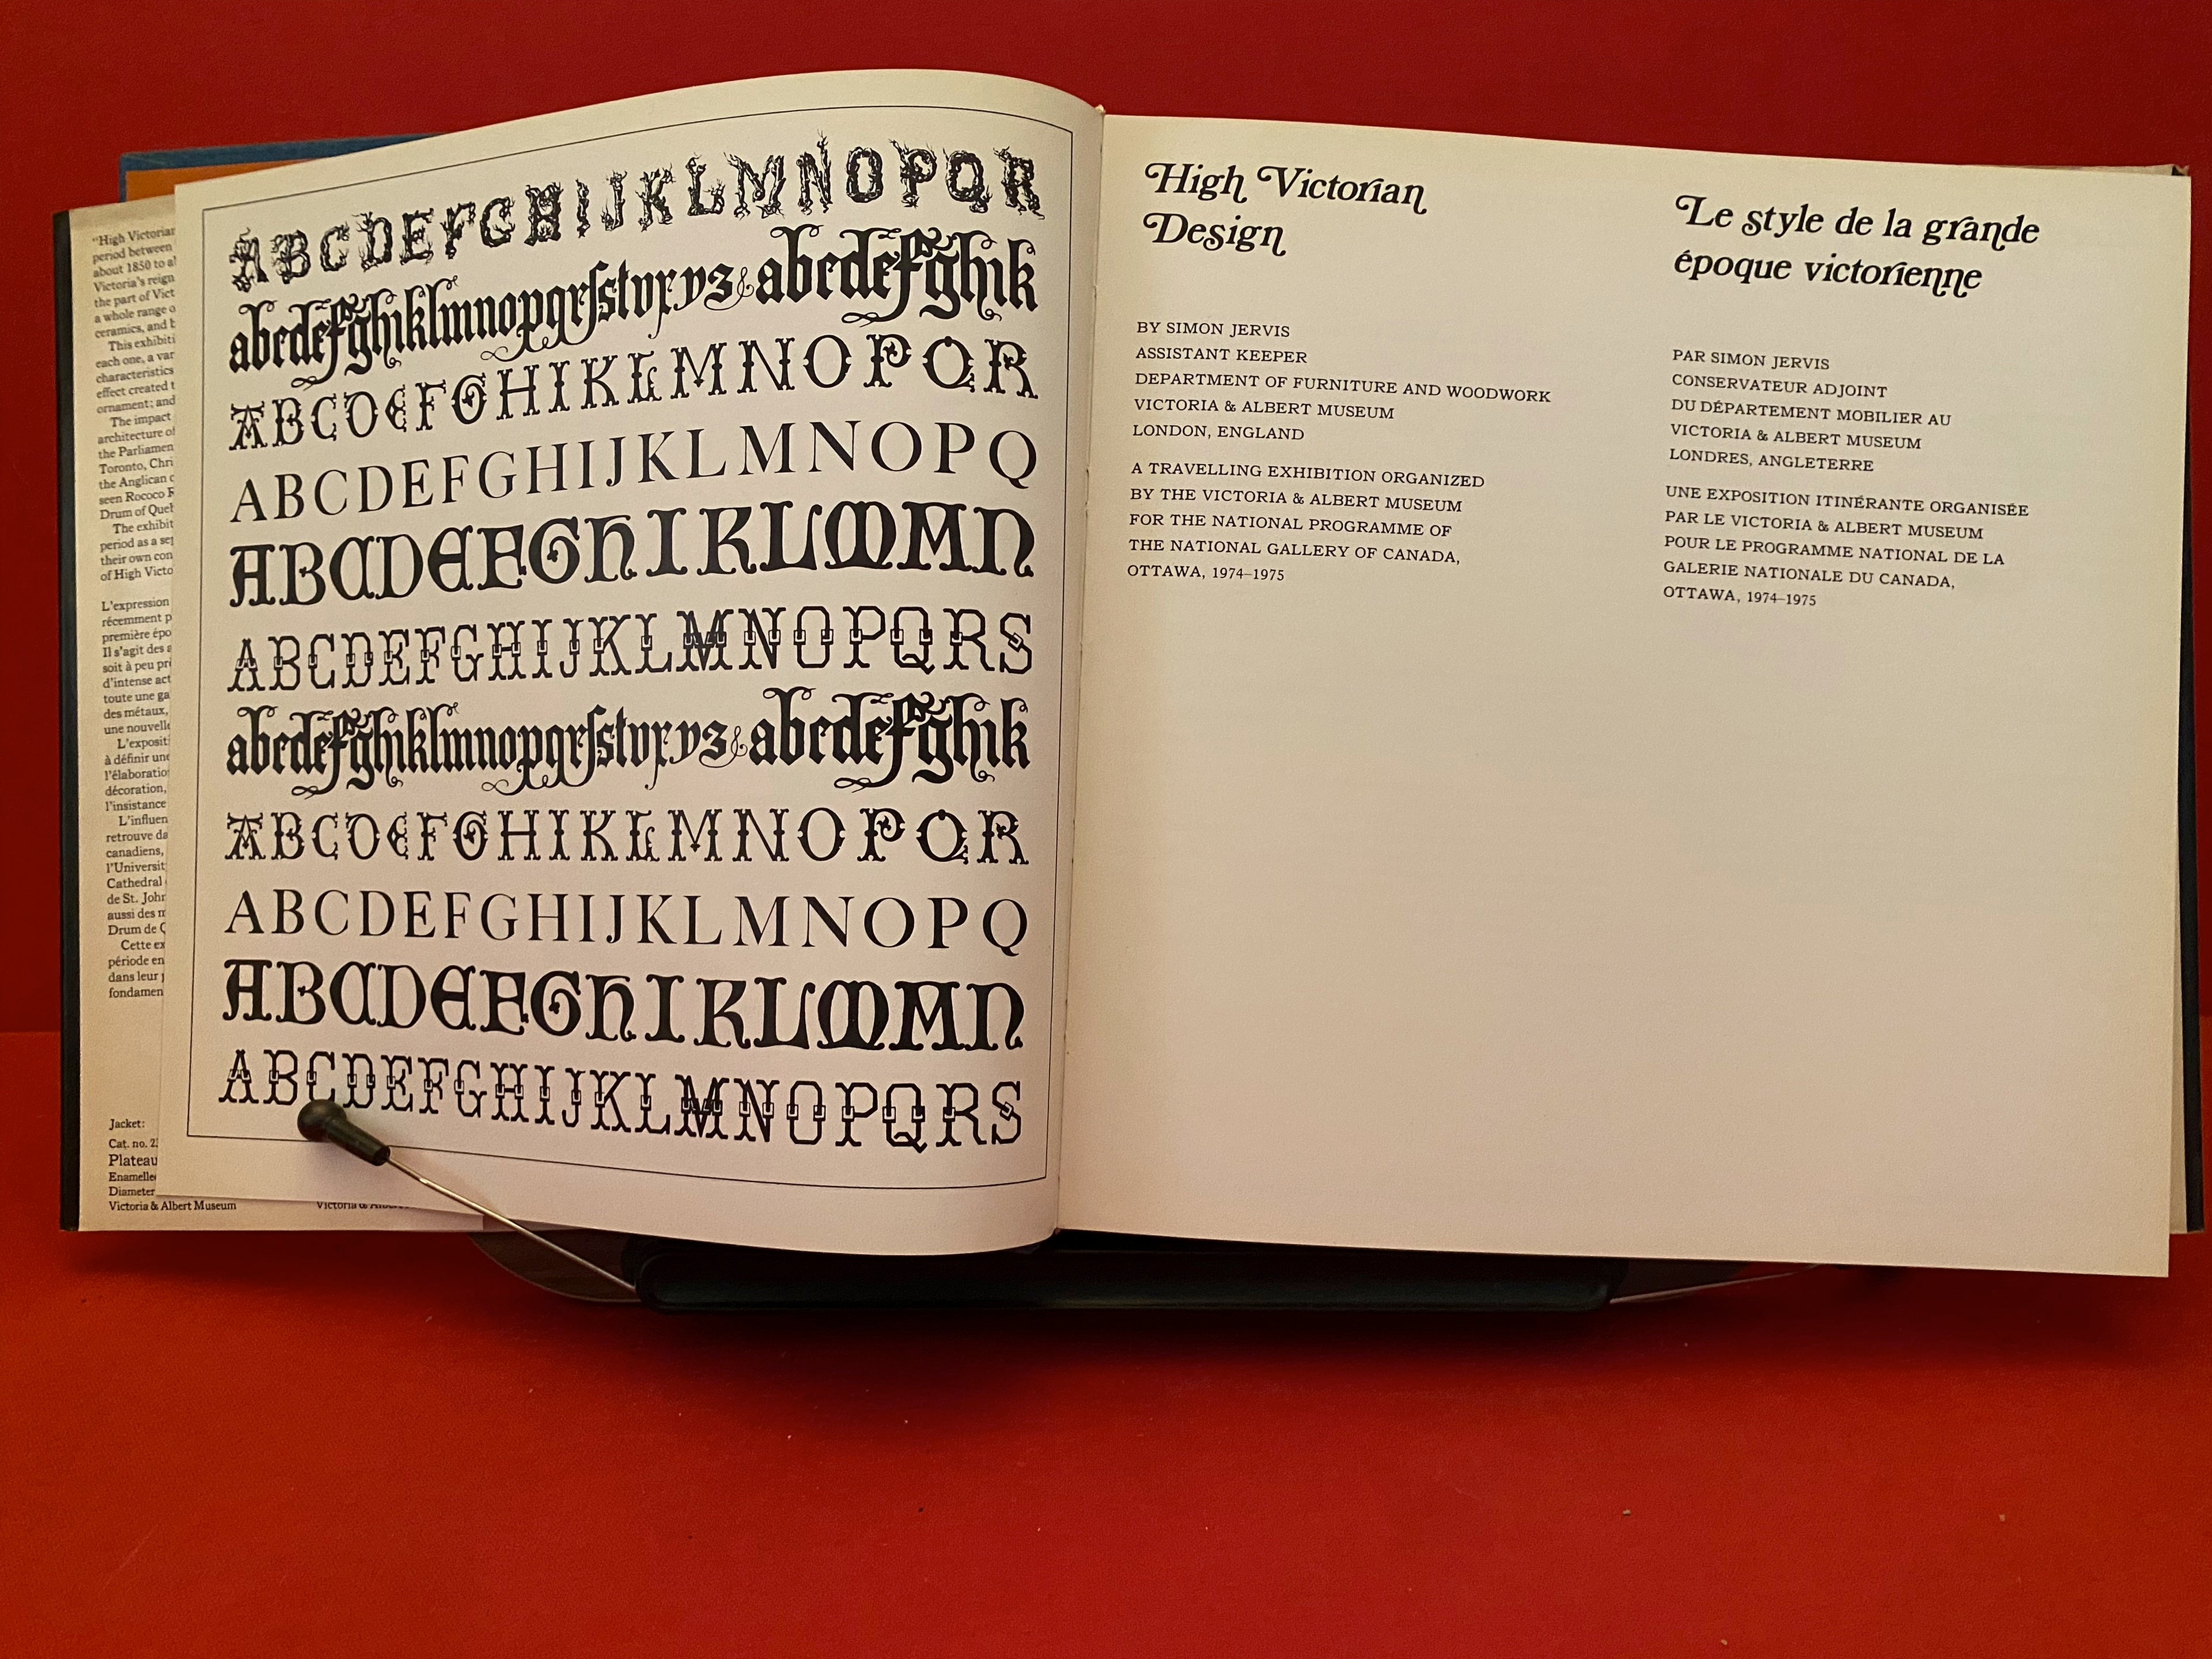 "High Victorian
period between
about 1850 to
Victoria's reign
the part of
a whole range
ceramics, and
This
each one, a
characteristics
effect created
ornament; and
The impact
architecture of
the
Toronto,
the Anglican
seen Rococo
Drum of
The
period as a
their own
of High
L'expression
récemment
première
Il s'agit des
soit à peu
d'intense
toute une
des métaux,
une nouvelle
à définir une
décoration,
l'insistance
retrouve
canadiens,
Cathedral
de St.
aussi des
Drum de
Cette
période en
dans leur
Jacket:
Cat. no.
Plateau
Diameter
Victoria & Albert Museum
ABCDEFGHIJKLMNOPQR
abcdefghiklmnopqrſstvxyz& abcdefghik
ABCDEFGHIKLMNOPQR
ABCDEFGHIJKLMNOPQ
ABCDEFGHIKLMMN
ABCDEFGHIJKLMNOPQRS
abcdefghiklmnopqrſstvxyz& abcdefghik
ABCDEFGHIKLMNOPQR
ABCDEFGHIJKLMNOPQ
ABCDEFGHIKLMMN
ABCDEFGHIJKLMNOPQRS
High Victorian
Design
BY SIMON JERVIS
ASSISTANT KEEPER
DEPARTMENT OF FURNITURE AND WOODWORK
VICTORIA & ALBERT MUSEUM
LONDON, ENGLAND
A TRAVELLING EXHIBITION ORGANIZED
BY THE VICTORIA & ALBERT MUSEUM
FOR THE NATIONAL PROGRAMME OF
THE NATIONAL GALLERY OF CANADA,
OTTAWA, 1974–1975
Le style de la grande
époque victorienne
PAR SIMON JERVIS
CONSERVATEUR ADJOINT
DU DÉPARTEMENT MOBILIER AU
VICTORIA & ALBERT MUSEUM
LONDRES, ANGLETERRE
UNE EXPOSITION ITINÉRANTE ORGANISÉE
PAR LE VICTORIA & ALBERT MUSEUM
POUR LE PROGRAMME NATIONAL DE LA
GALERIE NATIONALE DU CANADA,
OTTAWA, 1974–1975